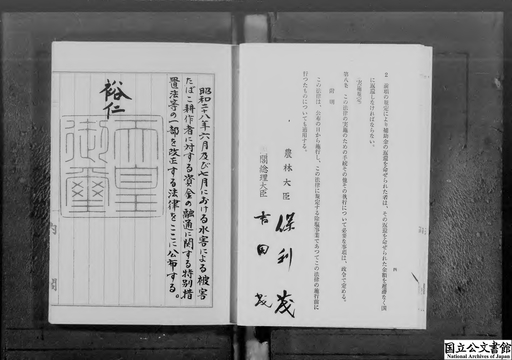 2 前項の規定により補助金の返還を命ぜられた者は、その返還を命ぜられた金額を遅滞なく国
に返還しなければならない。
第八条 この法律の実施のための手続その他その執行について必要な事項は、政令で定める。
附則
この法律は、公布の日から施行し、この法律に規定する除塩事業であつてこの法律の施行前に
行つたものについても適用する。
農林大臣 保利茂
内閣総理大臣 吉田茂
昭和二十八年六月及び七月における水害による被害
たばこ耕作者に対する資金の融通に関する特別措
置法等の一部を改正する法律をここに公布する。
裕仁
天皇
御璽
国立公文書館
National Archives of Japan